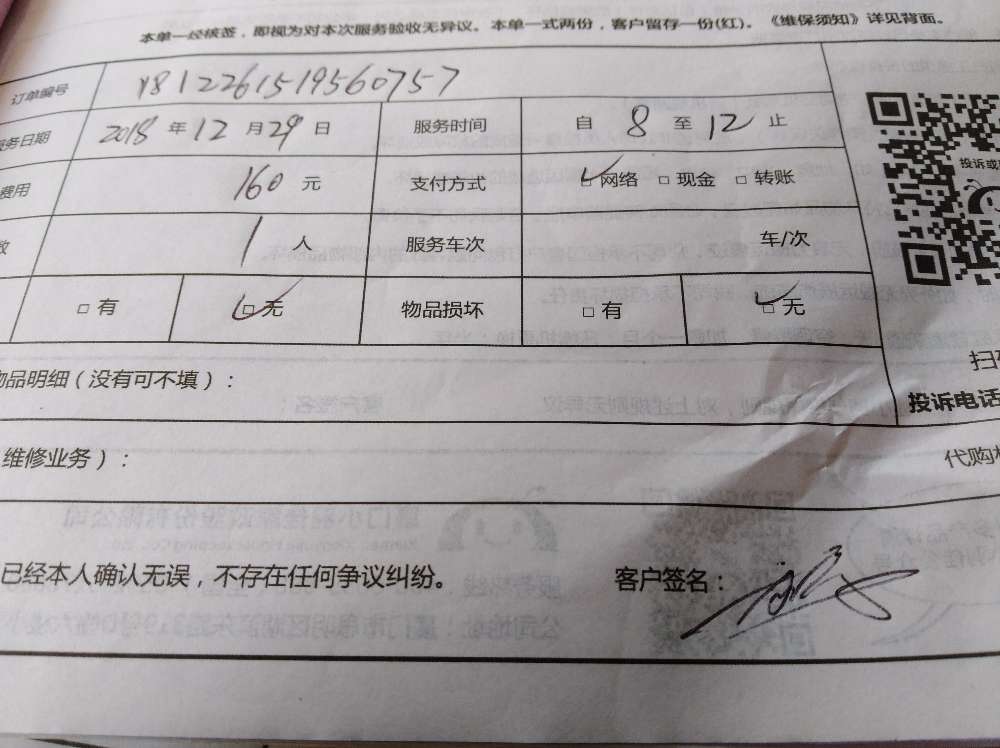 本单一经核签，即视为对本次服务验收无异议。本单一式两份，客户留存一份(红)。《维保须知》详见背面。
订单编号 Y8122615195607 57
务日期 2018 年 12 月 29 日 服务时间 自 8 至 12 止
费用 160 元 支付方式 □网络 □现金 □转账
数 1 人 服务车次 车/次
□有 □无 物品损坏 □有 □无
投诉或
扫
物品明细（没有可不填）：
投诉电话
维修业务）：
代购
已经本人确认无误，不存在任何争议纠纷。 客户签名：